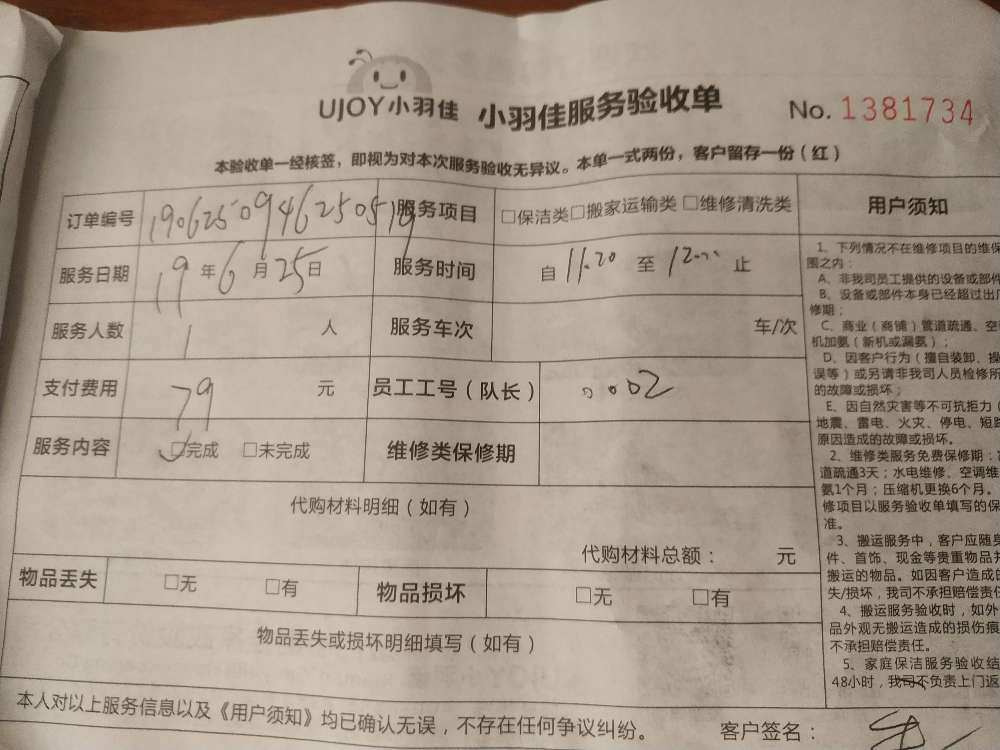 UJOY小羽佳 小羽佳服务验收单 No. 1381734
本验收单一经核签，即视为对本次服务验收无异议。本单一式两份，客户留存一份（红）
订单编号 1906250946250519 服务项目 □保洁类□搬家运输类 □维修清洗类 用户须知
服务日期 19 年 6 月 25 日 服务时间 自 11.20 至 12.00 止
服务人数 1 人 服务车次 车/次
支付费用 79 元 员工工号（队长） 0002
服务内容 □完成 □未完成 维修类保修期
代购材料明细（如有）
代购材料总额： 元
物品丢失 □无 □有 物品损坏 □无 □有
物品丢失或损坏明细填写（如有）
本人对以上服务信息以及《用户须知》均已确认无误，不存在任何争议纠纷。
客户签名：
1、下列情况不在维修项目的维保
围之内：
A、非我司员工提供的设备或部件
B、设备或部件本身已经超过出厂
修期；
C、商业（商铺）管道疏通、空
机加氨（新机或漏氨）；
D、因客户行为（擅自装卸、操
误等）或另请非我司人员检修所
的故障或损坏；
E、因自然灾害等不可抗拒力（
地震、雷电、火灾、停电、短路
原因造成的故障或损坏。
2、维修类服务免费保修期：
道疏通3天；水电维修、空调维
氨1个月；压缩机更换6个月。
修项目以服务验收单填写的保
准。
3、搬运服务中，客户应随身
件、首饰、现金等贵重物品并
搬运的物品。如因客户造成的
失/损坏，我司不承担赔偿责任
4、搬运服务验收时，如外
品外观无搬运造成的损伤痕
不承担赔偿责任。
5、家庭保洁服务验收结
48小时，我司不负责上门返